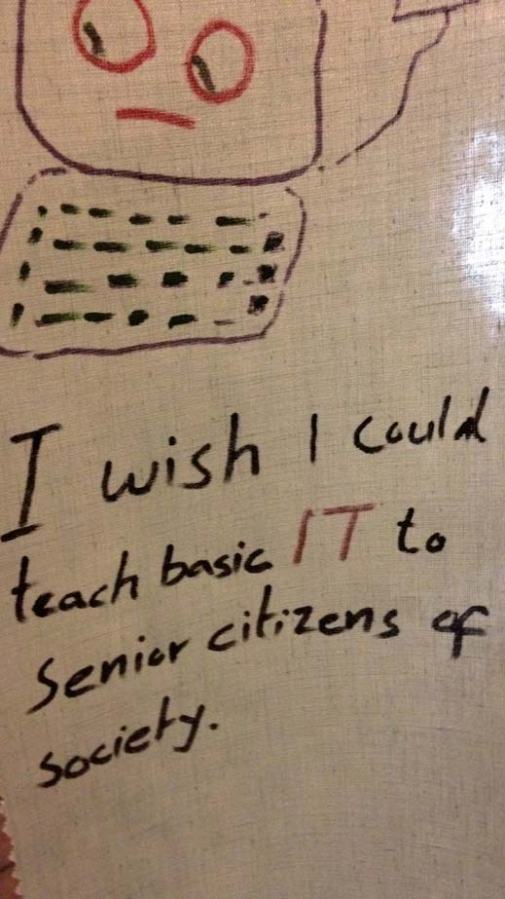 I wish I could
teach basic IT to
Senior citizens of
society.